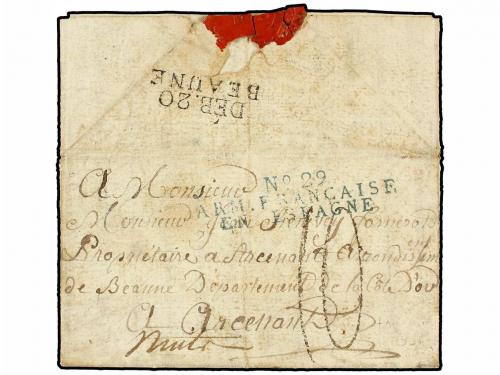 DEB. 20
BEAUNE
No. 29
ARM. FRANÇAISE
EN ESPAGNE
A Monsieur
Monsieur
Propriétaire a Arcenant
de Beaune Departement de la Côte D'or
A Arcenant